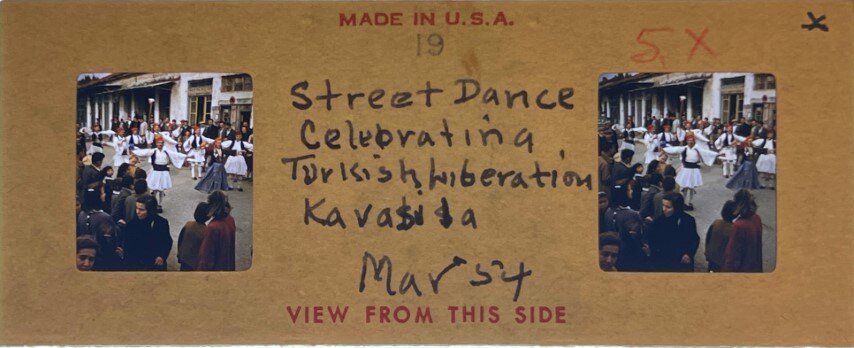 MADE IN U.S.A.
19
5. X
x
Street Dance
Celebrating
Turkish Liberation
Mar 54
VIEW FROM THIS SIDE